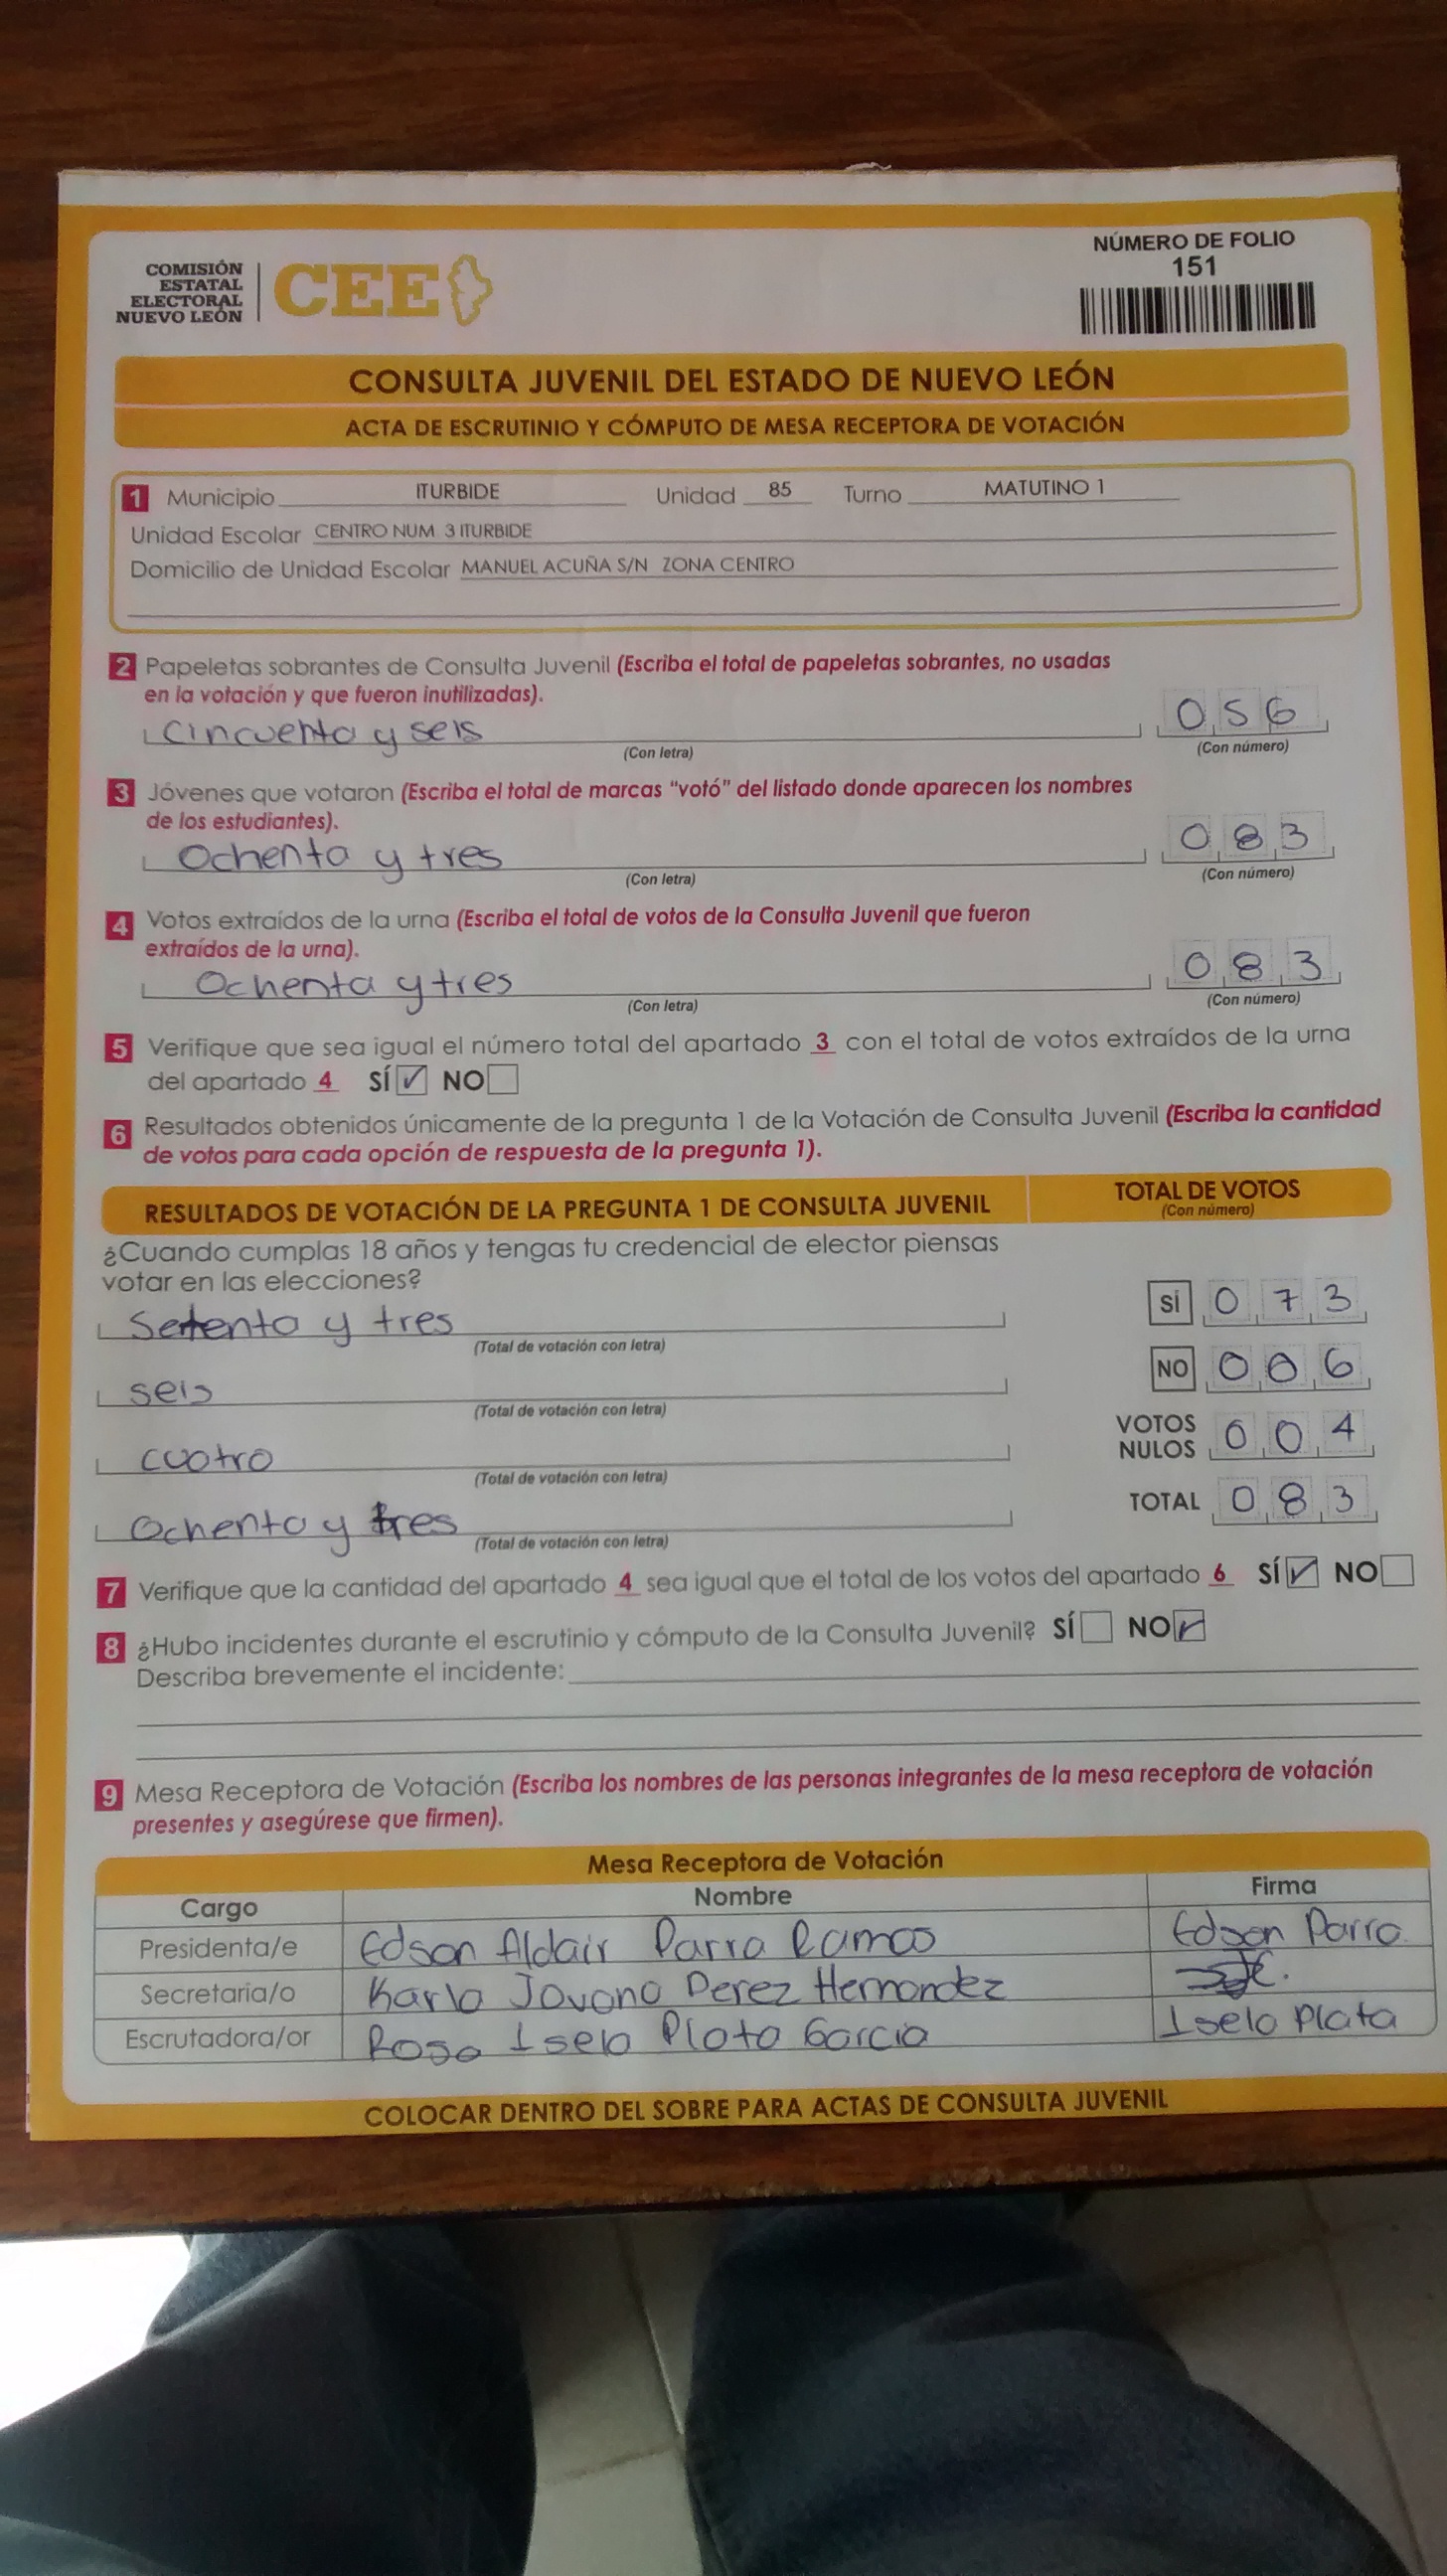 COMISIÓN
ESTATAL
ELECTORAL
NUEVO LEÓN
CEE
NÚMERO DE FOLIO
151
CONSULTA JUVENIL DEL ESTADO DE NUEVO LEÓN
ACTA DE ESCRUTINIO Y CÓMPUTO DE MESA RECEPTORA DE VOTACIÓN
1 Municipio ITURBIDE Unidad 85 Turno MATUTINO 1
Unidad Escolar CENTRO NUM 3 ITURBIDE
Domicilio de Unidad Escolar MANUEL ACUÑA S/N ZONA CENTRO
2 Papeletas sobrantes de Consulta Juvenil (Escriba el total de papeletas sobrantes, no usadas
en la votación y que fueron inutilizadas).
Cincuenta y seis 056
(Con letra) (Con número)
3 Jóvenes que votaron (Escriba el total de marcas "votó" del listado donde aparecen los nombres
de los estudiantes).
Ochenta y tres 083
(Con letra) (Con número)
4 Votos extraídos de la urna (Escriba el total de votos de la Consulta Juvenil que fueron
extraídos de la urna).
Ochenta y tres 083
(Con letra) (Con número)
5 Verifique que sea igual el número total del apartado 3 con el total de votos extraídos de la urna
del apartado 4 SÍ ✓ NO
6 Resultados obtenidos únicamente de la pregunta 1 de la Votación de Consulta Juvenil (Escriba la cantidad
de votos para cada opción de respuesta de la pregunta 1).
RESULTADOS DE VOTACIÓN DE LA PREGUNTA 1 DE CONSULTA JUVENIL TOTAL DE VOTOS
(Con número)
¿Cuando cumplas 18 años y tengas tu credencial de elector piensas
votar en las elecciones?
Setenta y tres SÍ 073
(Total de votación con letra)
seis NO 006
(Total de votación con letra)
cuatro VOTOS NULOS 004
(Total de votación con letra)
Ochenta y tres TOTAL 083
(Total de votación con letra)
7 Verifique que la cantidad del apartado 4 sea igual que el total de los votos del apartado 6 SÍ ✓ NO
8 ¿Hubo incidentes durante el escrutinio y cómputo de la Consulta Juvenil? SÍ NO ✓
Describa brevemente el incidente:
9 Mesa Receptora de Votación (Escriba los nombres de las personas integrantes de la mesa receptora de votación
presentes y asegúrese que firmen).
Mesa Receptora de Votación
Cargo Nombre Firma
Presidenta/e Edson Aldair Parra Ramos Edson Parra
Secretaria/o Karla Jovana Perez Hernandez
Escrutadora/or Rosa Isela Plata Garcia Isela Plata
COLOCAR DENTRO DEL SOBRE PARA ACTAS DE CONSULTA JUVENIL